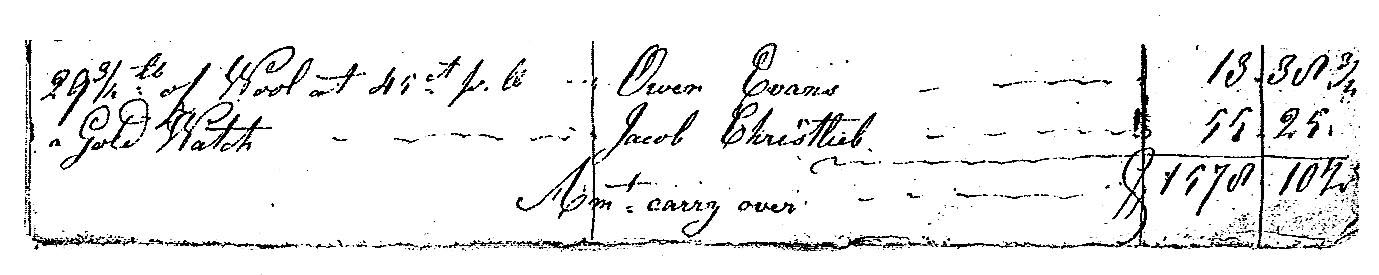 29 3/4 lb of Wool at 45 ct p. lb - Owen Evans - — 13. 38 3/4
a Gold Watch - — - — - Jacob Christlieb. - — - — 55. 25.
Amt. carry over - — - — $ 1578